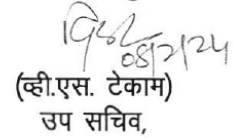 08/2/24
(व्ही.एस. टेकाम)
उप सचिव,